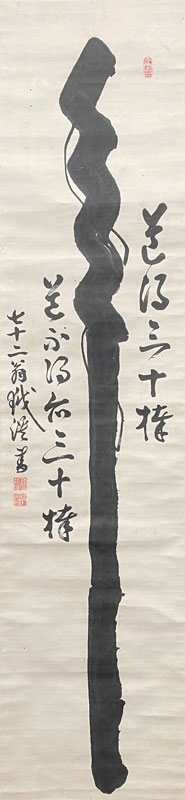 道得三十棒
道不得亦三十棒
七十二翁 書